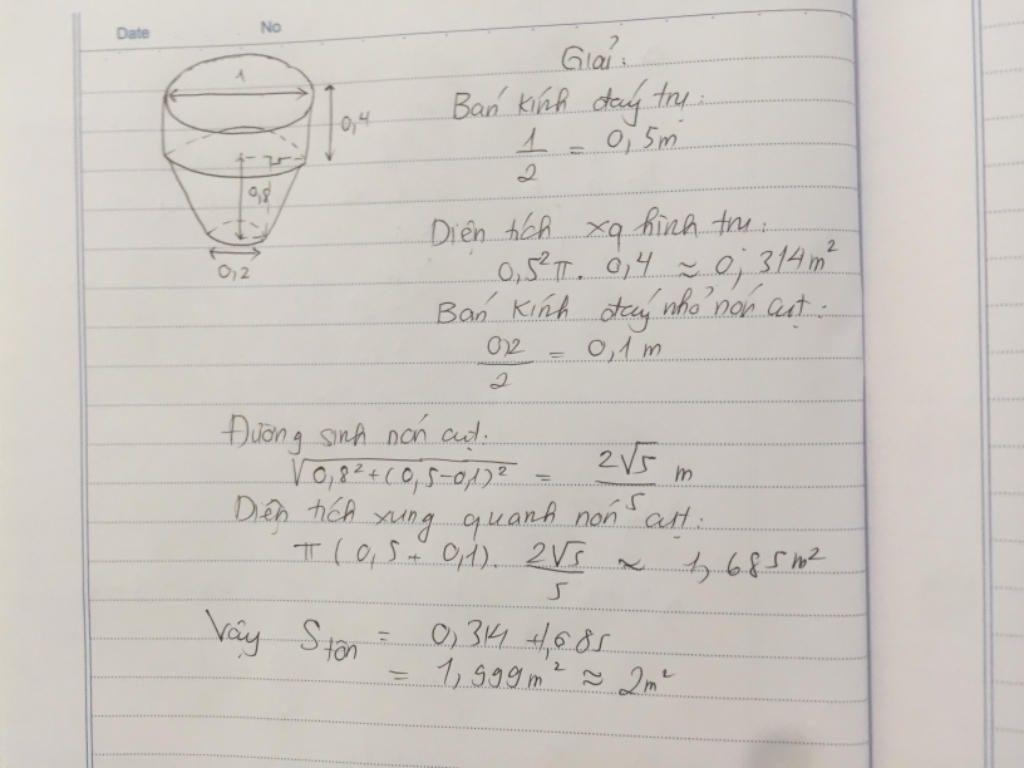 Date No
1
0,4
0,8
0,2
Giải:
Bán kính đáy trụ:
1/2 = 0,5m
Diện tích xq hình trụ:
0,5²π. 0,4 ≈ 0,314m²
Bán kính đáy nhỏ nón cụt:
0,2/2 = 0,1m
Đường sinh nón cụt:
√(0,8²+(0,5-0,1)²) = 2√5/5 m
Diện tích xung quanh nón cụt:
π(0,5+0,1). 2√5/5 ≈ 1,685m²
Vậy Stôn = 0,314 +1,685
= 1,999m² ≈ 2m²